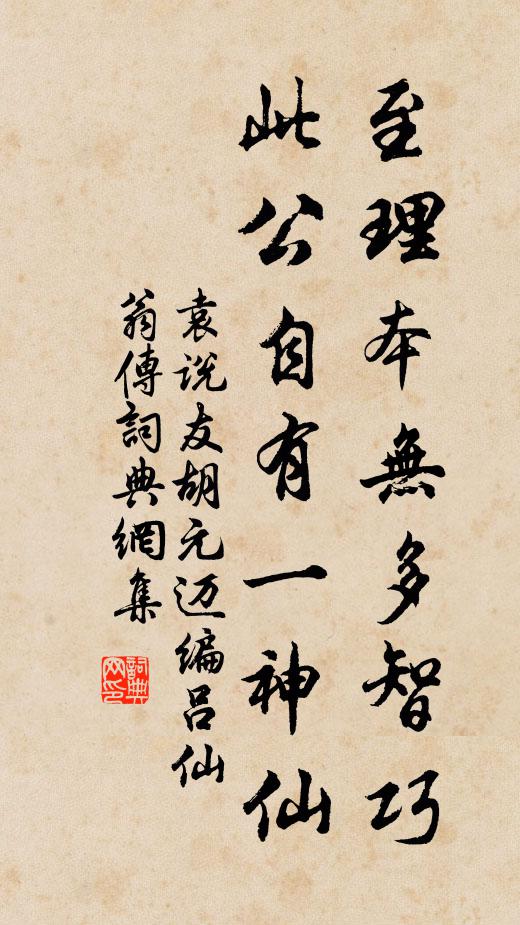 至理本無多智巧
此公自有一神仙
袁说友胡元迈编吕仙
翁傳詞典網集
詞典
网印